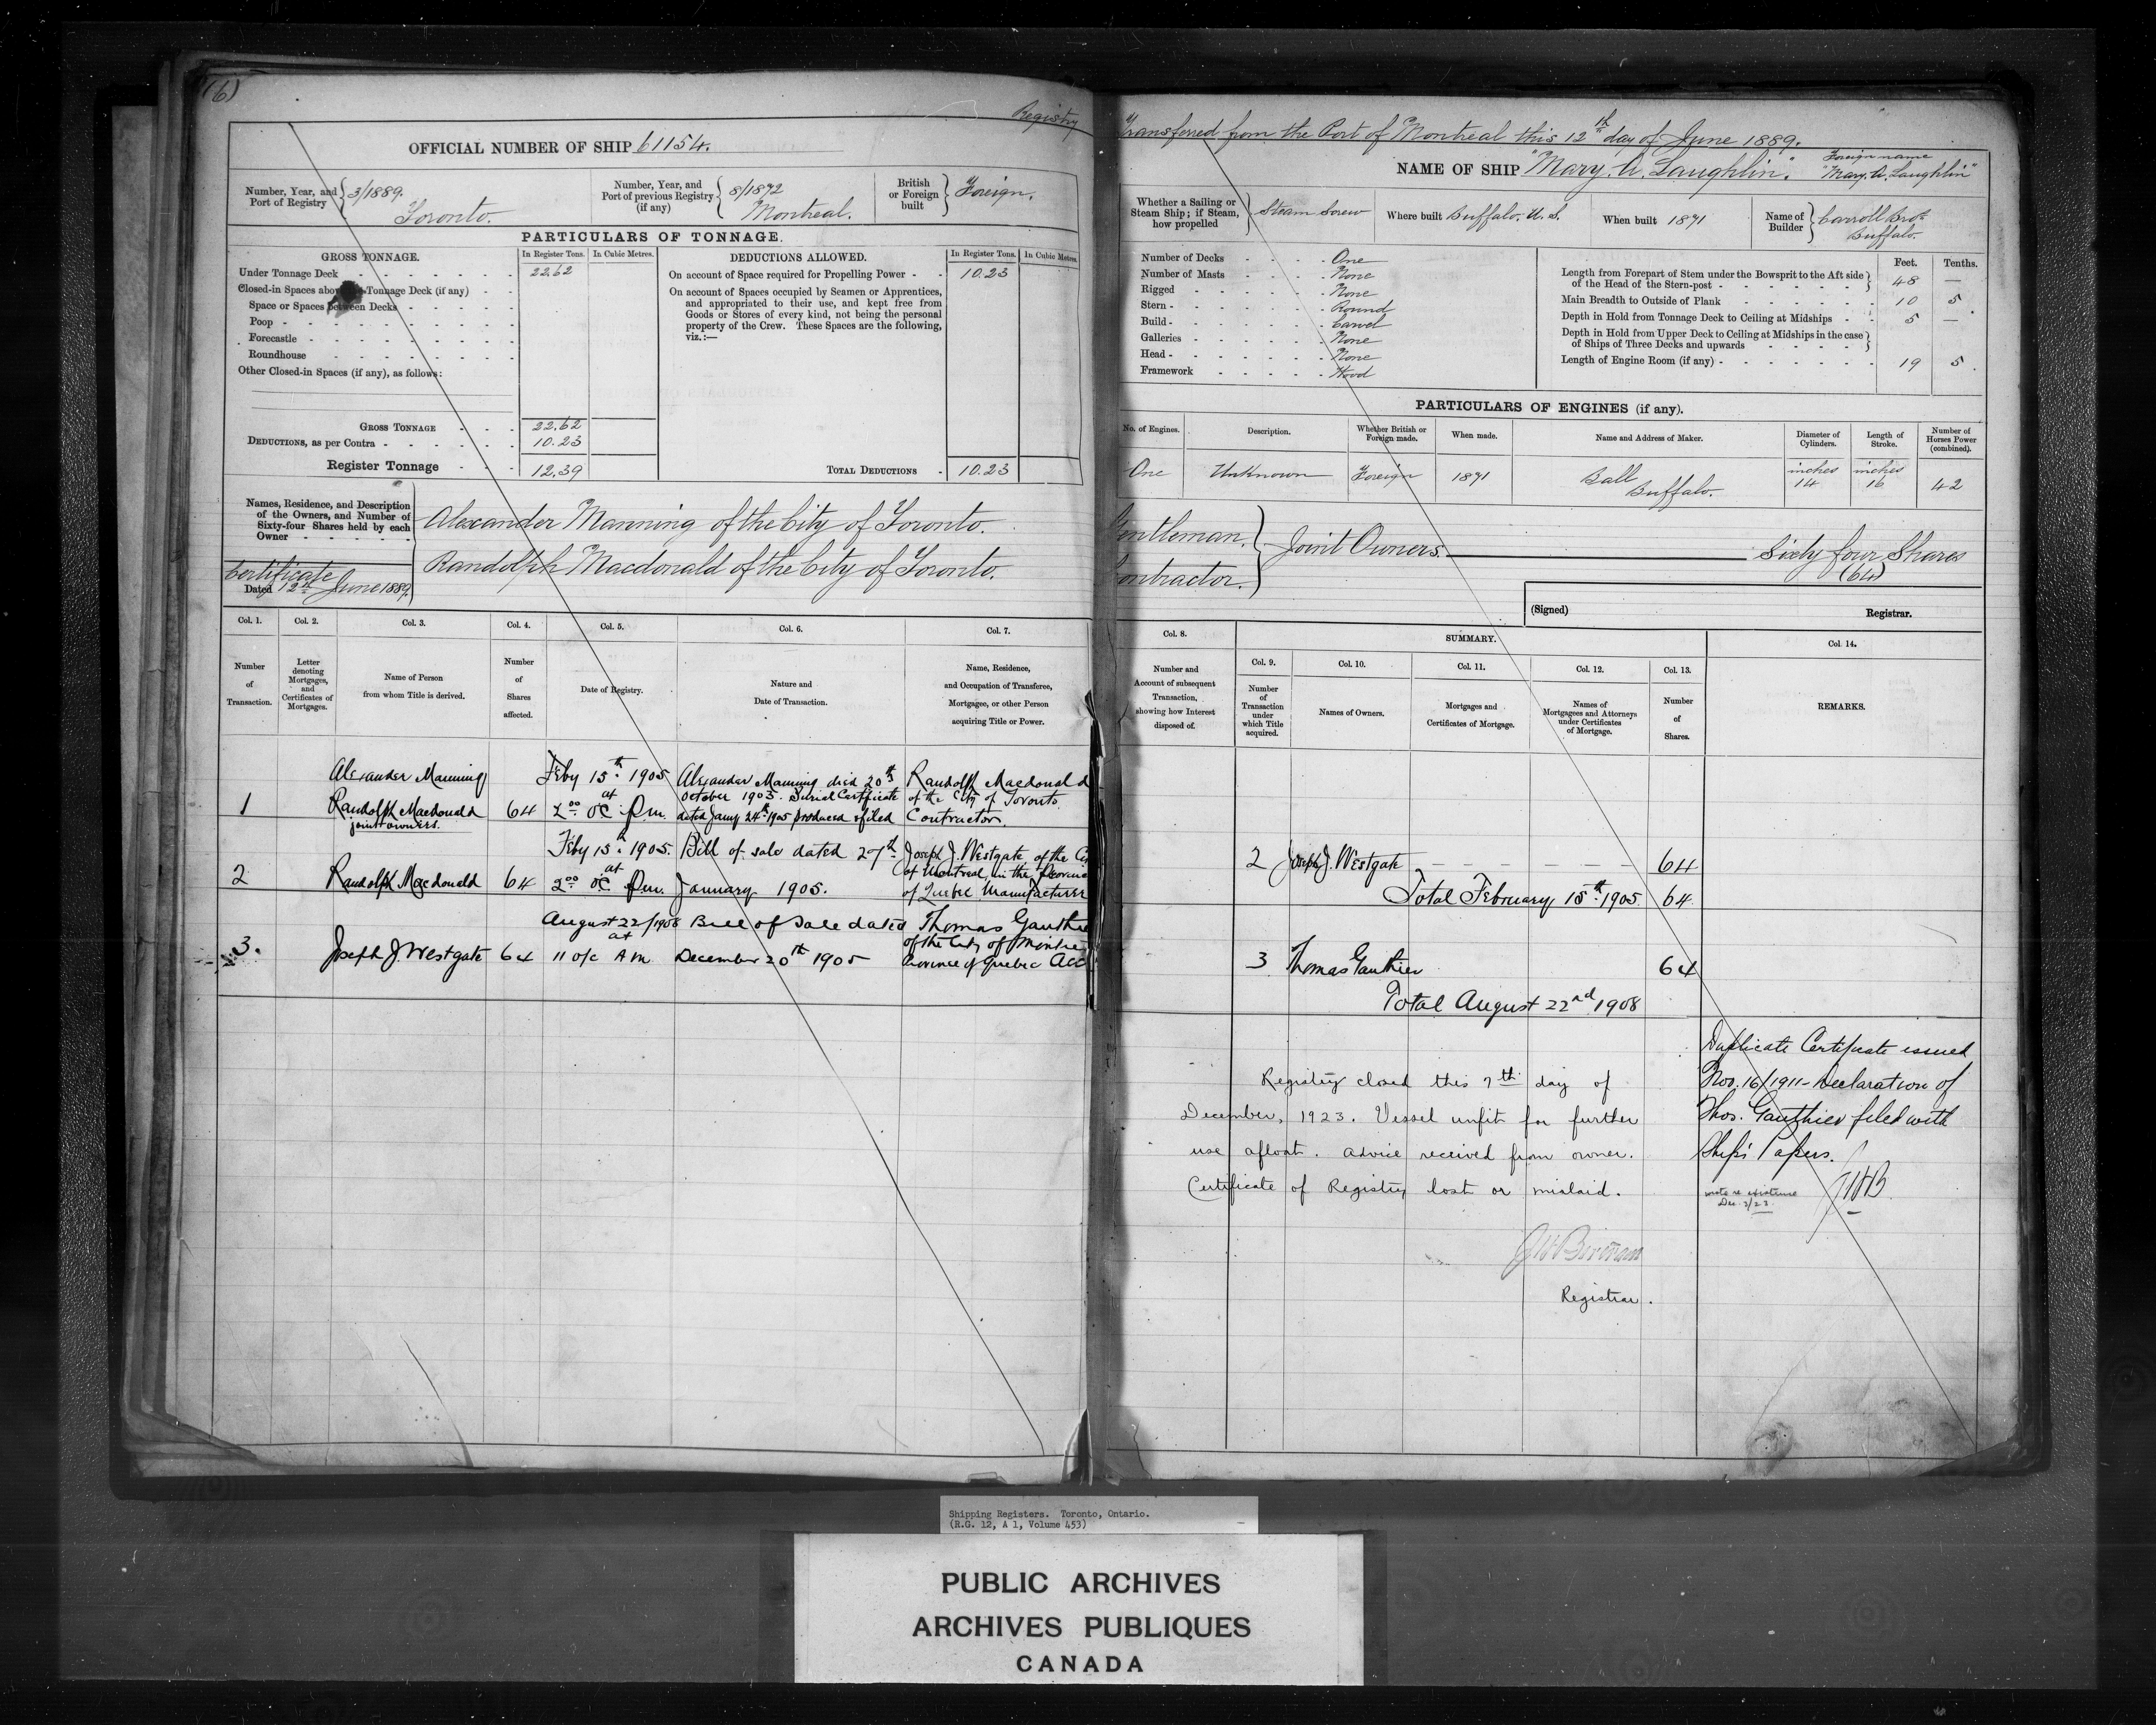 Registry
OFFICIAL NUMBER OF SHIP 61154.
Number, Year, and Port of Registry 3/1889. Toronto.
Number, Year, and Port of previous Registry (if any) 8/1872 Montreal.
British or Foreign built Foreign.
PARTICULARS OF TONNAGE.
GROSS TONNAGE. In Register Tons. In Cubic Metres.
Under Tonnage Deck 22.62
Closed-in Spaces above Tonnage Deck (if any)
Space or Spaces between Decks
Poop
Forecastle
Roundhouse
Other Closed-in Spaces (if any), as follows:
GROSS TONNAGE 22.62
DEDUCTIONS, as per Contra 10.23
Register Tonnage 12.39
DEDUCTIONS ALLOWED. In Register Tons. In Cubic Metres.
On account of Space required for Propelling Power 10.23
On account of Spaces occupied by Seamen or Apprentices,
and appropriated to their use, and kept free from
Goods or Stores of every kind, not being the personal
property of the Crew. These Spaces are the following,
viz.:—
TOTAL DEDUCTIONS 10.23
Names, Residence, and Description
of the Owners, and Number of
Sixty-four Shares held by each
Owner
Alexander Manning of the City of Toronto.
Randolph Macdonald of the City of Toronto.
Certificate
Dated 12th June 1889.
Col. 1. Col. 2. Col. 3. Col. 4. Col. 5. Col. 6. Col. 7.
Number of Transaction.
Letter denoting Mortgages, and Certificates of Mortgages.
Name of Person from whom Title is derived.
Number of Shares affected.
Date of Registry.
Nature and Date of Transaction.
Name, Residence, and Occupation of Transferee, Mortgagee, or other Person acquiring Title or Power.
1 Alexander Manning Randolph Macdonald joint owners. 64 Feby 15th 1905 at 2.00 oC P.m. Alexander Manning died 20th October 1903. Burial Certificate dated Jany 24th 1905 produced & filed Randolph Macdonald of the City of Toronto. Contractor.
2 Randolph Macdonald 64 Feby 15th 1905. at 2.00 oC P.m. Bill of sale dated 27th January 1905. Joseph J. Westgate of the of Montreal in the of Quebec Manufacturer
3. Joseph J. Westgate 64 August 22/1908 at 11 o/c A m Bill of Sale dated December 20th 1905 Thomas Gauthie of the City of Province of Quebec
Transferred from the Port of Montreal this 12th day of June 1889.
NAME OF SHIP "Mary. A. Laughlin." Foreign name "Mary. A. Laughlin"
Whether a Sailing or Steam Ship; if Steam, how propelled Steam Screw
Where built Buffalo. U.S.
When built 1871
Name of Builder Carroll Bros. Buffalo.
Number of Decks One
Number of Masts None
Rigged None
Stern Round
Build Carvel
Galleries None
Head None
Framework Wood
Feet. Tenths.
Length from Forepart of Stem under the Bowsprit to the Aft side of the Head of the Stern-post 48 —
Main Breadth to Outside of Plank 10 5
Depth in Hold from Tonnage Deck to Ceiling at Midships 5 —
Depth in Hold from Upper Deck to Ceiling at Midships in the case of Ships of Three Decks and upwards
Length of Engine Room (if any) 19 5
PARTICULARS OF ENGINES (if any).
No. of Engines. Description. Whether British or Foreign made. When made. Name and Address of Maker. Diameter of Cylinders. Length of Stroke. Number of Horses Power (combined).
One Unknown Foreign 1871 Bell Buffalo. inches 14 inches 16 42
Gentleman. Contractor. Joint Owners. Sixty four Shares (64)
(Signed) Registrar.
Col. 8. SUMMARY. Col. 14.
Col. 9. Col. 10. Col. 11. Col. 12. Col. 13.
Number and Account of subsequent Transaction, showing how Interest disposed of.
Number of Transaction under which Title acquired.
Names of Owners.
Mortgages and Certificates of Mortgage.
Names of Mortgagees and Attorneys under Certificates of Mortgage.
Number of Shares.
REMARKS.
2 Joseph J. Westgate 64
Total February 15th 1905 64
3 Thomas Gauthier 64
Total August 22nd 1908
Registry closed this 7th day of
December, 1923. Vessel unfit for further
use afloat. Advice received from owner.
Certificate of Registry lost or mislaid.
Registrar.
Duplicate Certificate issued
Nov. 16/1911 - Declaration of
Thos. Gauthier filed with
Ship's Papers.
wrote re existence
Dec 3/23.
Shipping Registers. Toronto, Ontario.
(R.G. 12, A 1, Volume 453)
PUBLIC ARCHIVES
ARCHIVES PUBLIQUES
CANADA